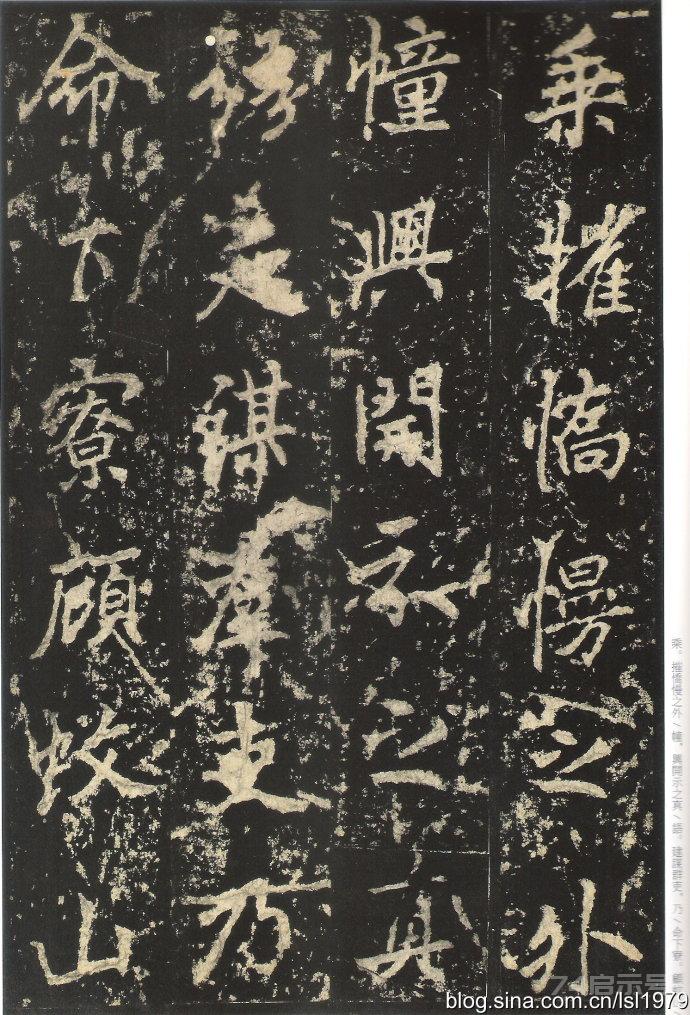 乘摧憍慢之外
幢興開示之真
緣謀羣吏乃
命下寮顧蚊山
乘。摧憍慢之外、幢。興開示之真、謀群吏。乃、命下寮。
blog.sina.com.cn/lsl1979